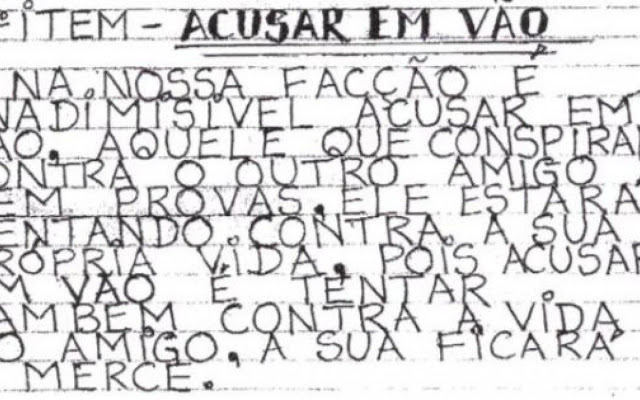 º ITEM - ACUSAR EM VÃO
NA NOSSA FACCÃO E
NADIMISIVEL ACUSAR EM
ÃO. AQUELE QUE CONSPIRA
ONTRA O OUTRO AMIGO
EM PROVAS, ELE ESTARA
ENTANDO CONTRA A SUA
RÓPRIA VIDA, POIS ACUSAR
M VÃO É TENTAR
AMBEM CONTRA A VIDA
O AMIGO, A SUA FICARÁ
MERCE.